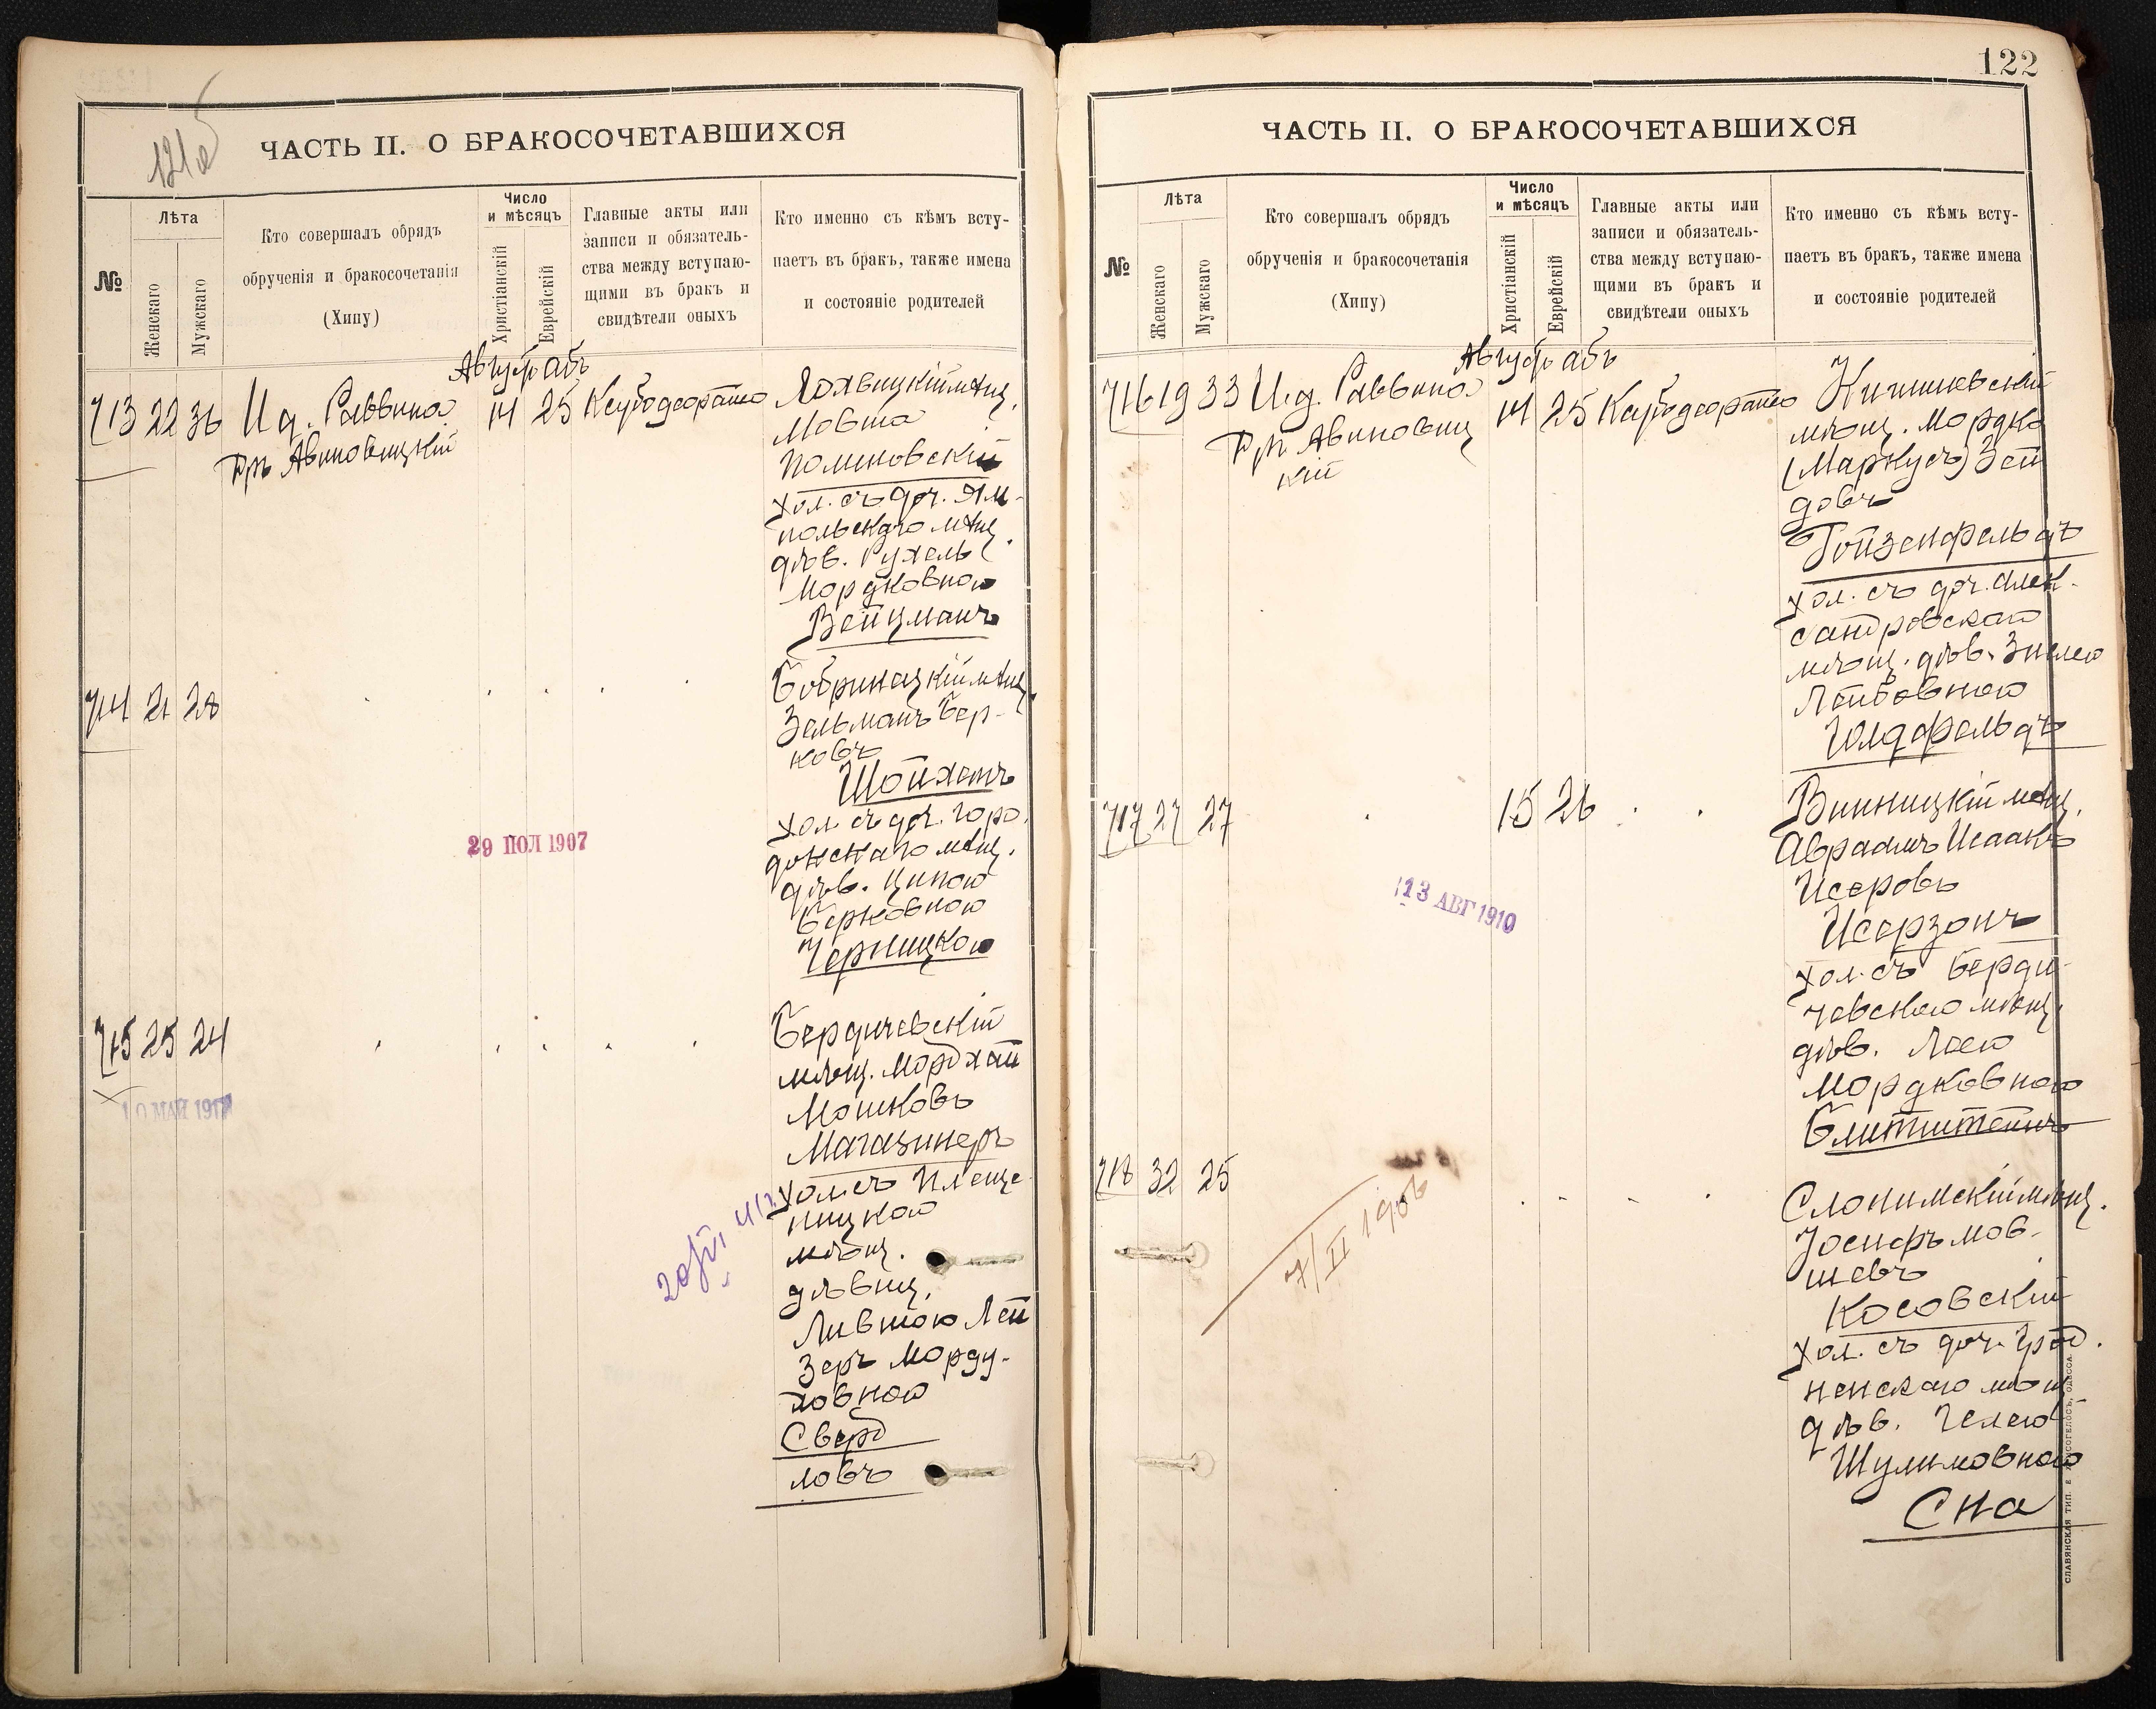 121об
ЧАСТЬ II. О БРАКОСОЧЕТАВШИХСЯ
№
Лѣта
Женскаго
Мужскаго
Кто совершалъ обрядъ
обрученія и бракосочетанія
(Хипу)
Число
и мѣсяцъ
Христіанскій
Еврейскій
Главные акты или
записи и обязатель-
ства между вступаю-
щими въ бракъ и
свидѣтели оныхъ
Кто именно съ кѣмъ всту-
паетъ въ бракъ, также имена
и состояніе родителей
Август Абъ
713 22 36 И д. Раввина 14 25
Гр. Авиновицкій
мѣщ.
Мовша
хол. съ доч. Ям-
польскаго мѣщ.
дѣв. Рухель
Мордковною
Вейцманъ
714 21 28
Бобринецкій мѣщ.
Зельманъ Бер-
ковъ
Шойхетъ
хол съ доч. Горо
мѣщ.
дѣв. Ципою
Берковною
Черницкою
29 ПОЛ 1907
715 25 24
Бердичевскій
мѣщ. Мордхай
Мошковъ
Магазинеръ
хол. съ Плеще
ницкой
мѣщ.
дѣвиц.
Лившою Лей
Зеръ Морду-
ховною
Сверд
ловъ
10 МАЙ 1917
122
ЧАСТЬ II. О БРАКОСОЧЕТАВШИХСЯ
№
Лѣта
Женскаго
Мужскаго
Кто совершалъ обрядъ
обрученія и бракосочетанія
(Хипу)
Число
и мѣсяцъ
Христіанскій
Еврейскій
Главные акты или
записи и обязатель-
ства между вступаю-
щими въ бракъ и
свидѣтели оныхъ
Кто именно съ кѣмъ всту-
паетъ въ бракъ, также имена
и состояніе родителей
Август Абъ
716 19 33 И.д. Раввина 14 25
Гр. Авиновиц
кій
Кишиневскій
мѣщ. Мордко
(Маркусъ) Зей
довъ
Гойзенфельдъ
хол. съ доч. Алек-
сандровскаго
мѣщ. дѣв. Энелею
Лейбовною
Голдфельдъ
717 27 27 15 26
Винницкій мѣщ.
Авраамъ Исаакъ
Исеровъ
Исерзонъ
хол. съ Берди-
чевскою мѣщ.
дѣв. Леею
Мордковною
Блитштейнъ
13 АВГ 1910
718 32 25
7/II 1906
Слонимскій мѣщ.
Іосифъ Мов-
шевъ
Косовскій
хол. съ доч. Грод.
ненскаго мѣщ
дѣв. Гелею
Шулимовною
Сна
СЛАВЯНСКАЯ ТИП. Е ХРИСОГЕЛОСЪ, ОДЕССА.